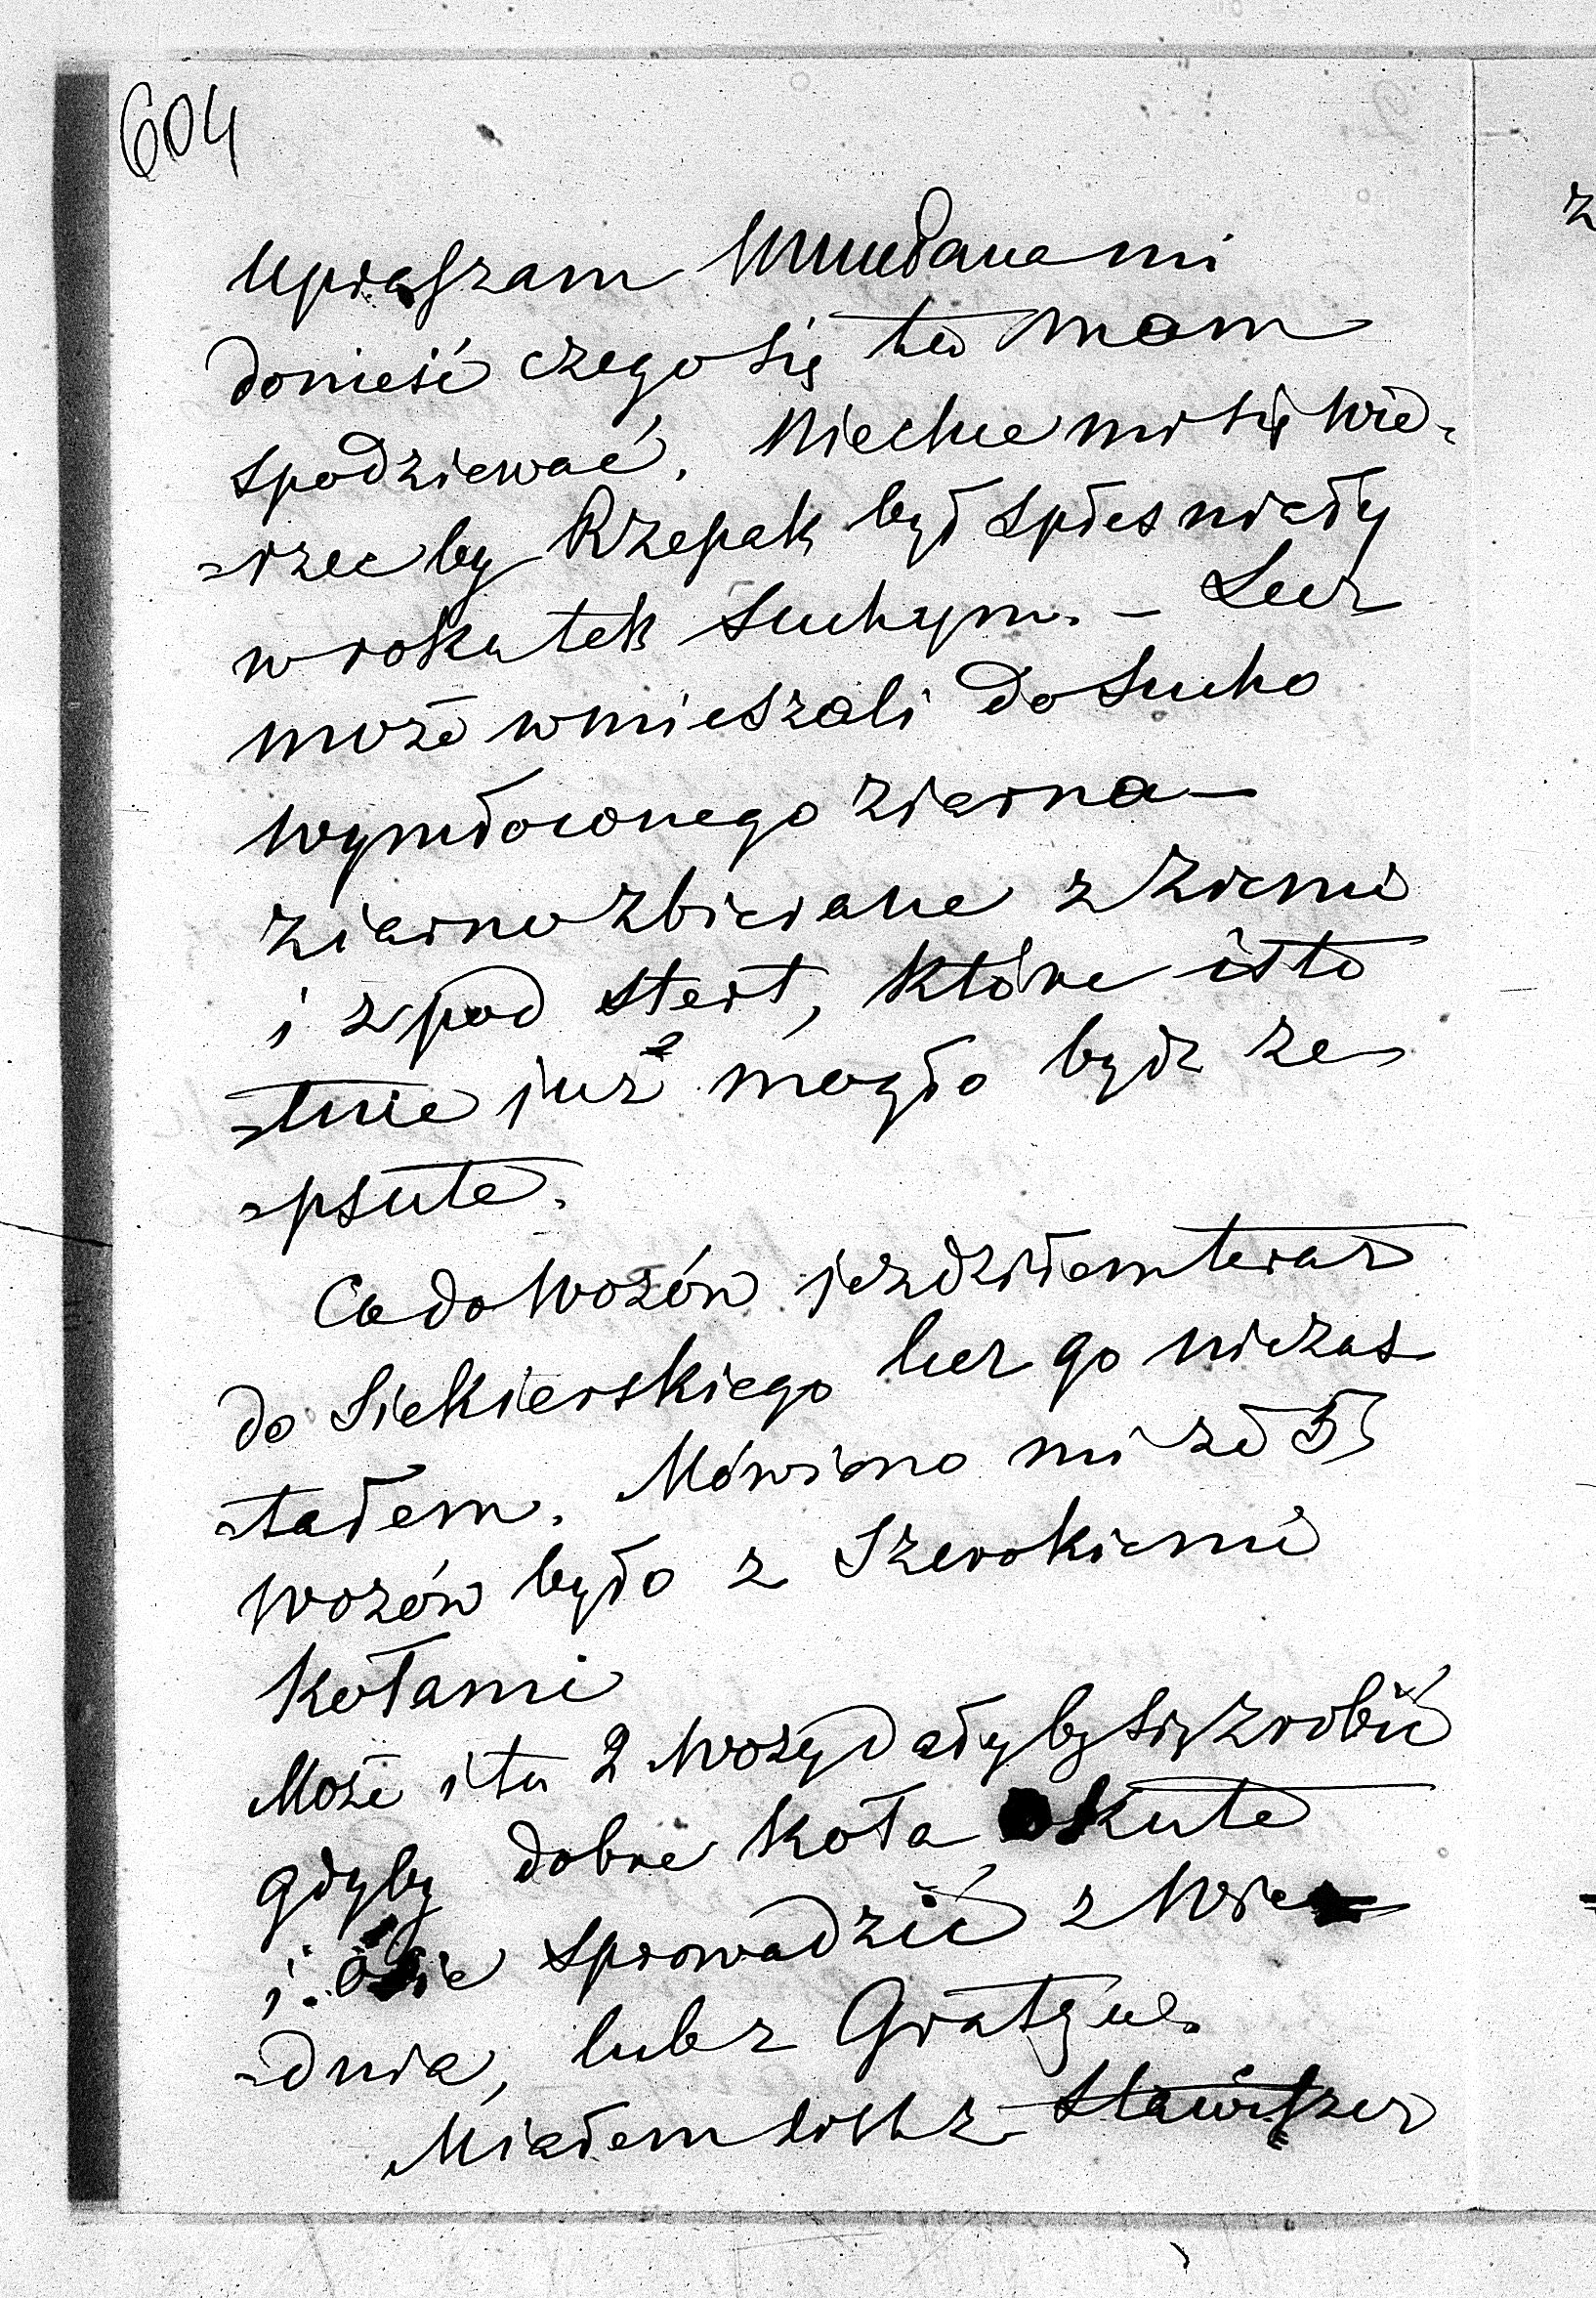 604
Upraszam WMMDana mi
donieść czego się tu mam
spodziewać. Niechce mi się wie-
-rzec by Rzepak był spłesniały
w roku tek suchym. - Lecz
może wmieszali do sucho
wymłoconego ziarna -
ziarno zbierane z ziemi
i z pod stert, które isto
-tnie już mogło bydz ze
-psute.
Co do wozów jezdziłem teraz
do Siekierskiego lecz go niezas
-tałem. Mówiono mi że 5
wozów było z szerokiemi
kołami
Może i tu 2 wozy dałyby się zrobić
gdyby dobre koła okute
i osie sprowadzić z Wie
-dnia, lub z Gratzu.
Miałem list z Stawiszcz
z